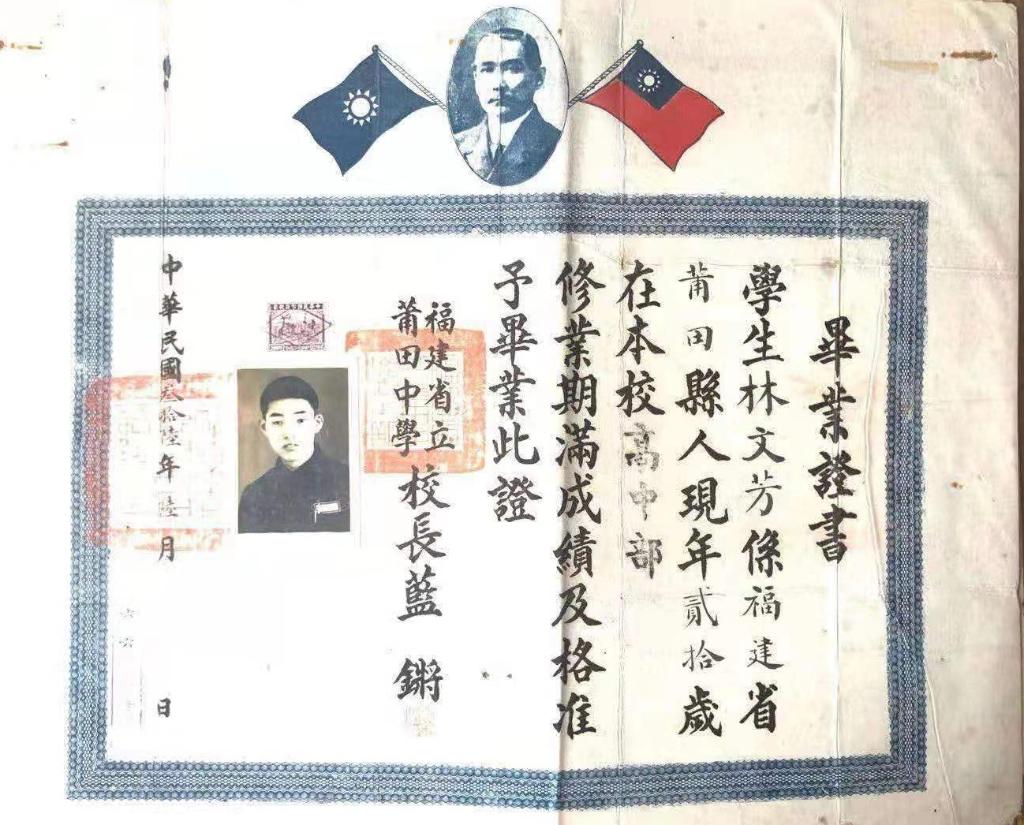 畢業證書
學生林文芳係福建省
莆田縣人現年貳拾歲
在本校高中部
修業期滿成績及格准
予畢業此證
福建省立
莆田中學
校長藍鏘
中華民國叁拾陸年陸月 日